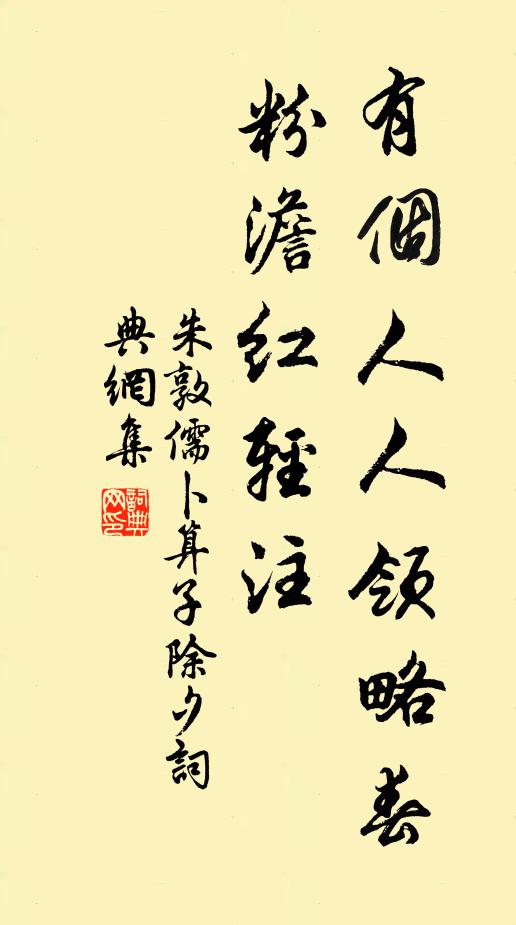 有個人人領略春
粉澹紅輕注
朱敦儒卜算子除夕詞
典網集
詞典網印